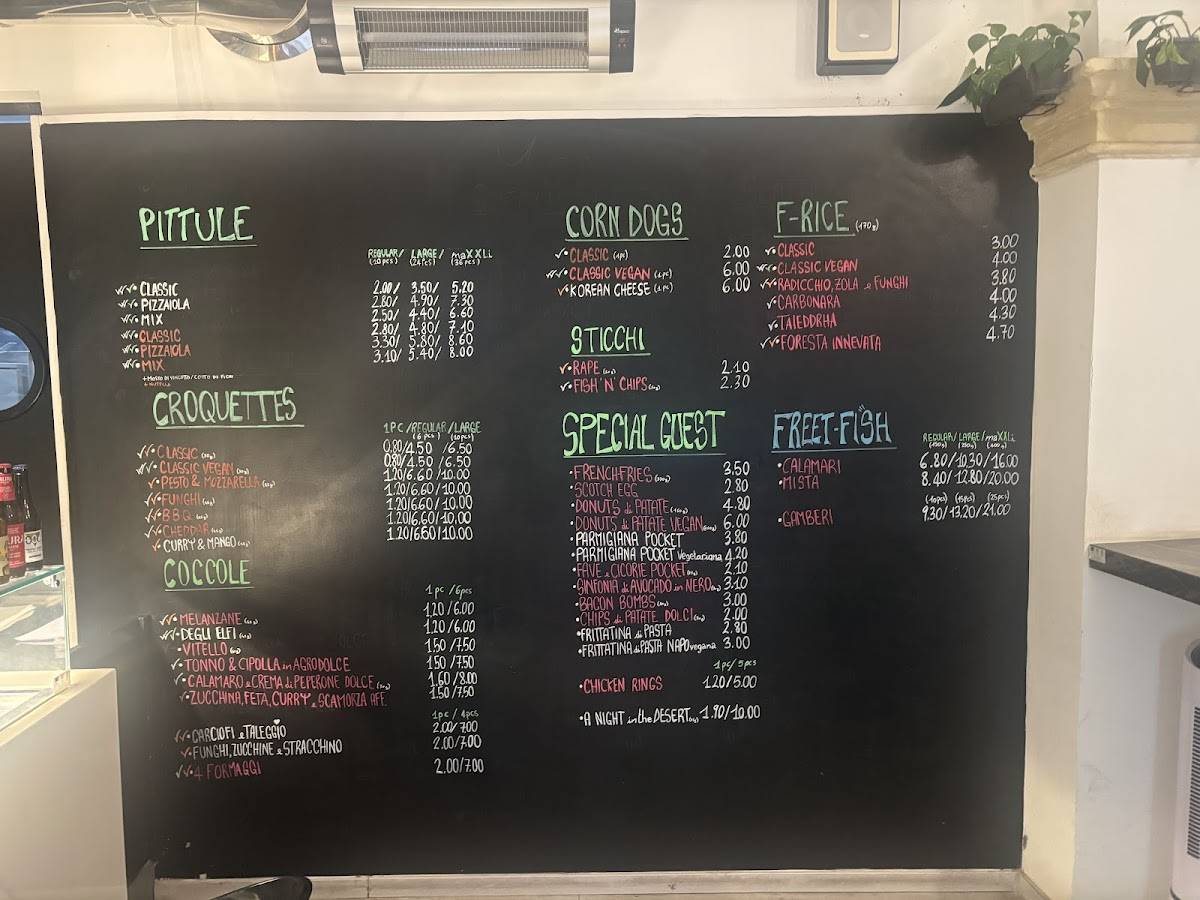 PITTULE
REGULAR/ LARGE/ maXXLi
(10 pcs) (24 pcs) (36 pcs)
CLASSIC 2.00/ 3.50/ 5.20
PIZZAIOLA 2.80/ 4.90/ 7.30
MIX 2.50/ 4.40/ 6.60
CLASSIC 2.80/ 4.80/ 7.10
PIZZAIOLA 3.30/ 5.80/ 8.60
MIX 3.10/ 5.40/ 8.00
CROQUETTES
1 PC /REGULAR /LARGE
(6 pcs) (10 pcs)
CLASSIC 0.80/4.50 /6.50
CLASSIC VEGAN 0.80/4.50 /6.50
PESTO & MOZZARELLA 1.20/6.60/10.00
FUNGHI 1.20/6.60/10.00
B.B.Q. 1.20/6.60/10.00
CHEDDAR 1.20/6.60/10.00
CURRY & MANGO 1.20/6.60/10.00
COCCOLE
1 pc /6pcs
MELANZANE 1.20/6.00
DEGLI ELFI 1.20/6.00
VITELLO 1.50/7.50
TONNO & CIPOLLA in AGRODOLCE 1.50/7.50
CALAMARO e CREMA di PEPERONE DOLCE 1.60/8.00
ZUCCHINA, FETA, CURRY e SCAMORZA AFF. 1.50/7.50
1pc / 4pcs
CARCIOFI e TALEGGIO 2.00/7.00
FUNGHI, ZUCCHINE e STRACCHINO 2.00/7.00
4 FORMAGGI 2.00/7.00
CORN DOGS
CLASSIC (1 pc) 2.00
CLASSIC VEGAN (1 pc) 6.00
KOREAN CHEESE (1 pc) 6.00
STICCHI
RAPE 2.10
FISH 'N' CHIPS 2.30
SPECIAL GUEST
FRENCH FRIES 3.50
SCOTCH EGG 2.80
DONUTS di PATATE 4.80
DONUTS di PATATE VEGAN 6.00
PARMIGIANA POCKET 3.80
PARMIGIANA POCKET vegetariana 4.20
FAVE e CICORIE POCKET 2.10
SINFONIA di AVOCADO in NERO 3.10
BACON BOMBS 3.00
CHIPS di PATATE DOLCI 2.00
FRITTATINA di PASTA 2.80
FRITTATINA di PASTA NAPO vegana 3.00
1pc/ 5pcs
CHICKEN RINGS 1.20/5.00
A NIGHT in the DESERT 1.90/10.00
F-RICE (170g)
CLASSIC 3.00
CLASSIC VEGAN 4.00
RADICCHIO, ZOLA e FUNGHI 3.80
CARBONARA 4.00
TAIEDDRHA 4.30
FORESTA INNEVATA 4.70
FREET-FISH
REGULAR/ LARGE /maXXLi
CALAMARI 6.80/10.30/16.00
MISTA 8.40/12.80/20.00
(10pcs) (15pcs) (25pcs)
GAMBERI 9.30/13.20/21.00